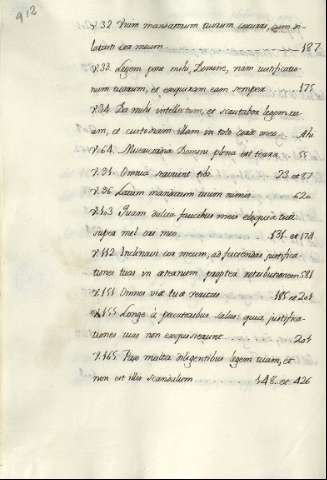 912
v.32 Viam mandatorum tuorum cucurri, cum di
latasti cor meum 187
v.33 Legem pone mihi, Domine, viam iustificatio
num tuarum, et exquiram eam semper 175
v.34 Da mihi intellectum, et scrutabor legem tu
am, et custodiam illam in toto corde meo
v.64 Misericordia Domini plena est terra 55
v.91 Omnia serviunt tibi 23 et 87
v.96 Latum mandatum tuum nimis 620
v.103 Quam dulcia faucibus meis eloquia tua
super mel ori meo 131 et 174
v.112 Inclinavi cor meum, ad faciendas justifica
tiones tuas in æternum, propter retributionem 581
v.151 Omnes viæ tuæ veritas 185 et 201
v.155 Longe à peccatoribus salus: quia justifica
tiones tuas non exquisierunt 201
v.165 Pax multa diligentibus legem tuam, et
non est illis scandalum 148 et 426